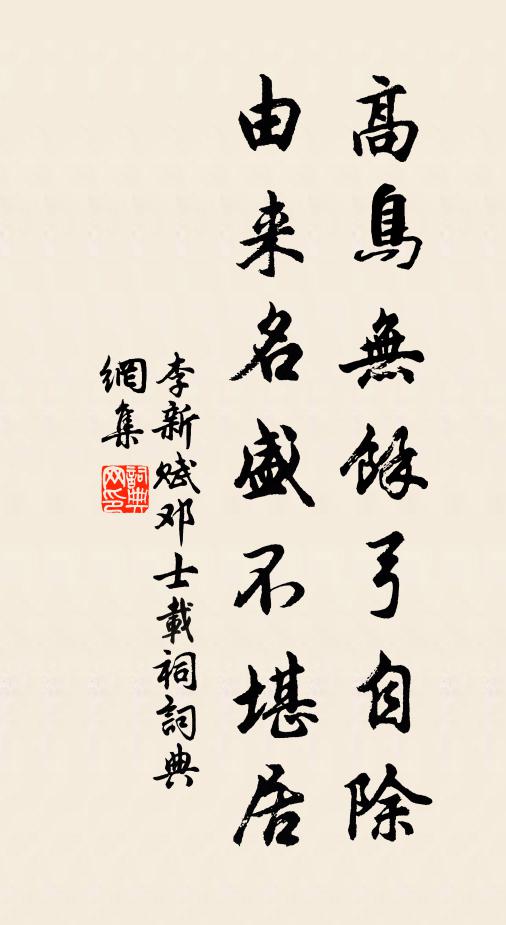 高鳥無餘弓自除
由来名盛不堪居
李新賦邓士載祠詞典
網集
詞典
网印